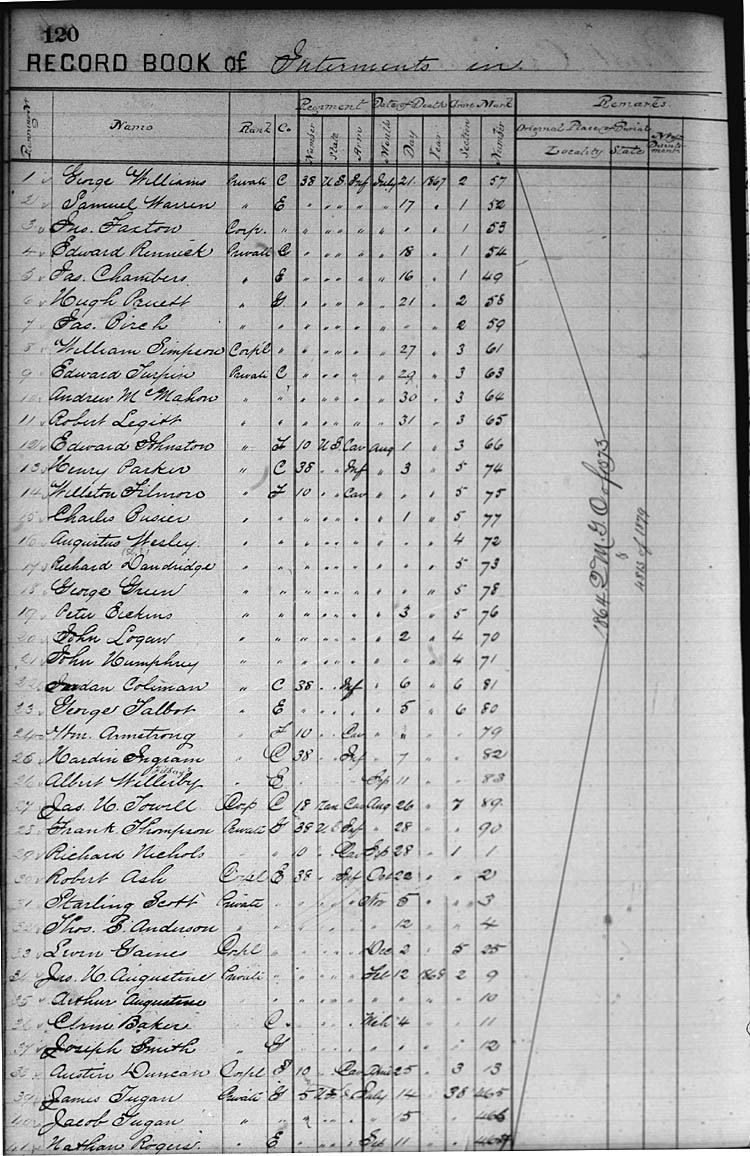 120
RECORD BOOK of Interments in
Regiment Date of Death Grave Mark Remarks.
Name Rank Co. Number State Arm Month Day Year Section Number Original Place of Burial
Locality State
1 George Williams Private C 38 U S Inf July 21 1867 2 57
2 Samuel Warren " E " " " " 17 " 1 52
3 Jno. Faxton Corp. " " " " " " " 1 53
4 Edward Rennick Private G " " " " 18 " 1 54
5 Jas. Chambers " E " " " " 16 " 1 49
6 Hugh Pruett " G " " " " 21 " 2 58
7 Jas. Birch " " " " " " " " 2 59
8 William Simpson Corpl " " " " " 27 " 3 61
9 Edward Turpin Private C " " " " 29 " 3 63
10 Andrew McMahon " " " " " " 30 " 3 64
11 Robert Legitt " " " " " " 31 " 3 65
12 Edward Johnston " F 10 U S Cav Aug 1 " 3 66
13 Henry Parker " C 38 " " Inf " 3 " 5 74
14 Willston Filmore " F 10 " " Cav " " " 5 75
15 Charles Busier " " " " " " 1 " 5 77
16 Augustus Wesley " " " " " " " " 4 72
17 Richard Dandridge " " " " " " " " 5 73
18 George Green " " " " " " " " 5 78
19 Peter Eickins " " " " " " 3 " 5 76
20 John Logan " " " " " " 2 " 4 70
21 John Humphrey " " " " " " " " 4 71
22 Jordan Coliman " C 38 " " Inf " 6 " 6 81
23 George Talbot " E " " " " 5 " 6 80
24 Wm. Armstrong " F 10 " " Cav " " " " 79
25 Hardin Ingram " C 38 " " Inf " 7 " " 82
26 Albert Willerby " E " " " Sep 11 " " 83
27 Jas. H. Towell Corp C 18 Cav Aug 26 " 7 89
28 Frank Thompson Private G 38 U S Inf " 28 " " 90
29 Richard Nichols " " 10 " Cav Sep 28 " 1 1
30 Robert Ash Corpl E 38 " Inf Oct 22 " " 2
31 Starling Scott Private " " " " Nov 5 " " 3
32 Thos. E. Anderson " " " " " " 12 " " 4
33 Levin Gaines Corpl " " " " Dec 2 " 5 25
34 Jas. H. Augustine Private " " " " Feb 12 1868 2 9
35 Arthur Augustine " " " " " " " " " 10
36 Clem Baker " C " " " Mch 4 " " 11
37 Joseph Smith " G " " " " " " " 12
38 Austin Duncan Corpl F 10 " Cav 25 " 3 13
39 James Fugan Private G 5 U S " July 14 " 38 465
40 Jacob Fugan " " " " " " 15 " " 466
41 Nathan Rogers " E " " " Sep 11 " "
1864 Q M G O of 1873
&
4813 of 1879